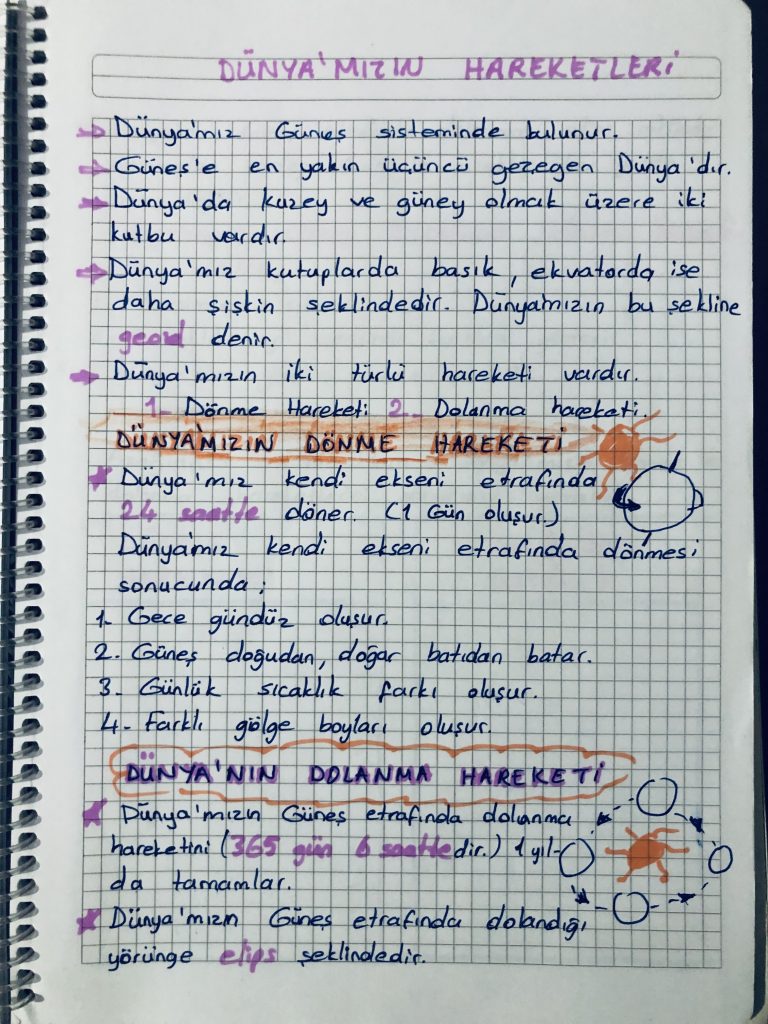 DÜNYA'MIZIN HAREKETLERİ
Dünya'mız Güneş sisteminde bulunur.
Güneş'e en yakın üçüncü gezegen Dünya'dır.
Dünya'da kuzey ve güney olmak üzere iki
kutbu vardır.
Dünya'mız kutuplarda basık, ekvatorda ise
daha şişkin şeklindedir. Dünyamızın bu şekline
geoid denir.
Dünya'mızın iki türlü hareketi vardır.
1- Dönme Hareketi 2- Dolanma hareketi.
DÜNYA'MIZIN DÖNME HAREKETİ
Dünya'mız kendi ekseni etrafında
24 saatte döner. (1 Gün oluşur.)
Dünya'mız kendi ekseni etrafında dönmesi
sonucunda;
1- Gece gündüz oluşur.
2- Güneş doğudan, doğar batıdan batar.
3- Günlük sıcaklık farkı oluşur.
4- Farklı gölge boyları oluşur.
DÜNYA'NIN DOLANMA HAREKETİ
Dünya'mızın Güneş etrafında dolanma
hareketini (365 gün 6 saattedir.) 1 yıl-
da tamamlar.
Dünya'mızın Güneş etrafında dolandığı
yörünge elips şeklindedir.